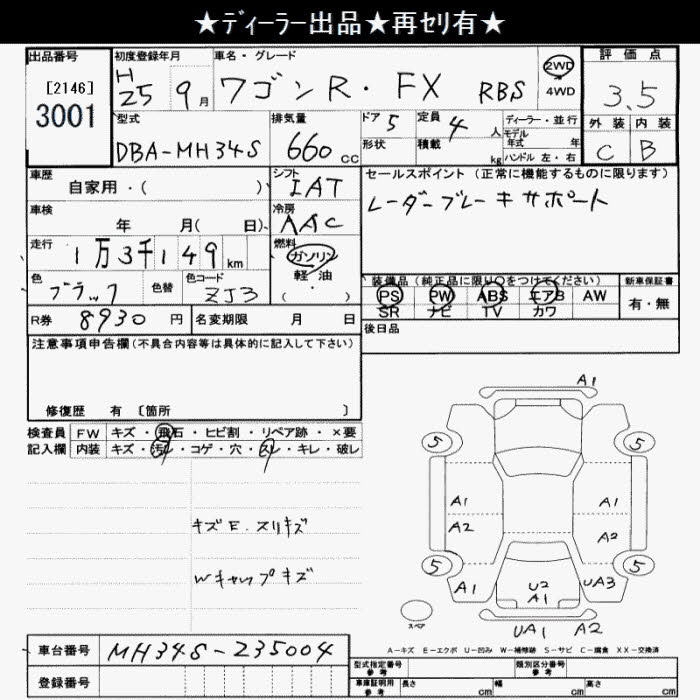 ★ディーラー出品★再セリ有★
出品番号 初度登録年月 車名・グレード 評価点
[2146] 3001 H25 9月 ワゴンR・FX RBS 2WD 4WD 3.5
型式 排気量 ドア 5 定員 4人 ディーラー・並行 外装 内装
DBA-MH34S 660cc 形状 積載 kg モデル年式 年 C B
ハンドル 左・右
車歴 自家用・( ) シフト IAT セールスポイント (正常に機能するものに限ります)
車検 年 月( 日) 冷房 AAC レーダーブレーキサポート
走行 1万3千149km 燃料 ガソリン 軽油 ( )
色 ブラック 色替 色コード ZJ3 装備品 (純正品に限り○をつけてください) 新車保証書
PS PW ABS エアB AW 有・無
SR ナビ TV カワ
R券 8930円 名変期限 月 日 後日品
注意事項申告欄(不具合内容等は具体的に記入して下さい)
修復歴 有 〔箇所 〕
検査員 FW キズ・飛石・ヒビ割・リペア跡・×要
記入欄 内装 キズ・汚レ・コゲ・穴・スレ・キレ・破レ
キズE.スリキズ
Wキャップキズ
A1
5 5
A1 A1
A2 A2
5 5
A1 U2 A1 UA3
スペア UA1 A2
A-キズ E-エクボ U-凹み W-補修跡 S-サビ C-腐食 XX-交換済
車台番号 MH34S-235004 型式指定番号 参考 類別区分番号 参考
登録番号 車庫証明用 参考 長さ cm 幅 cm 高さ cm